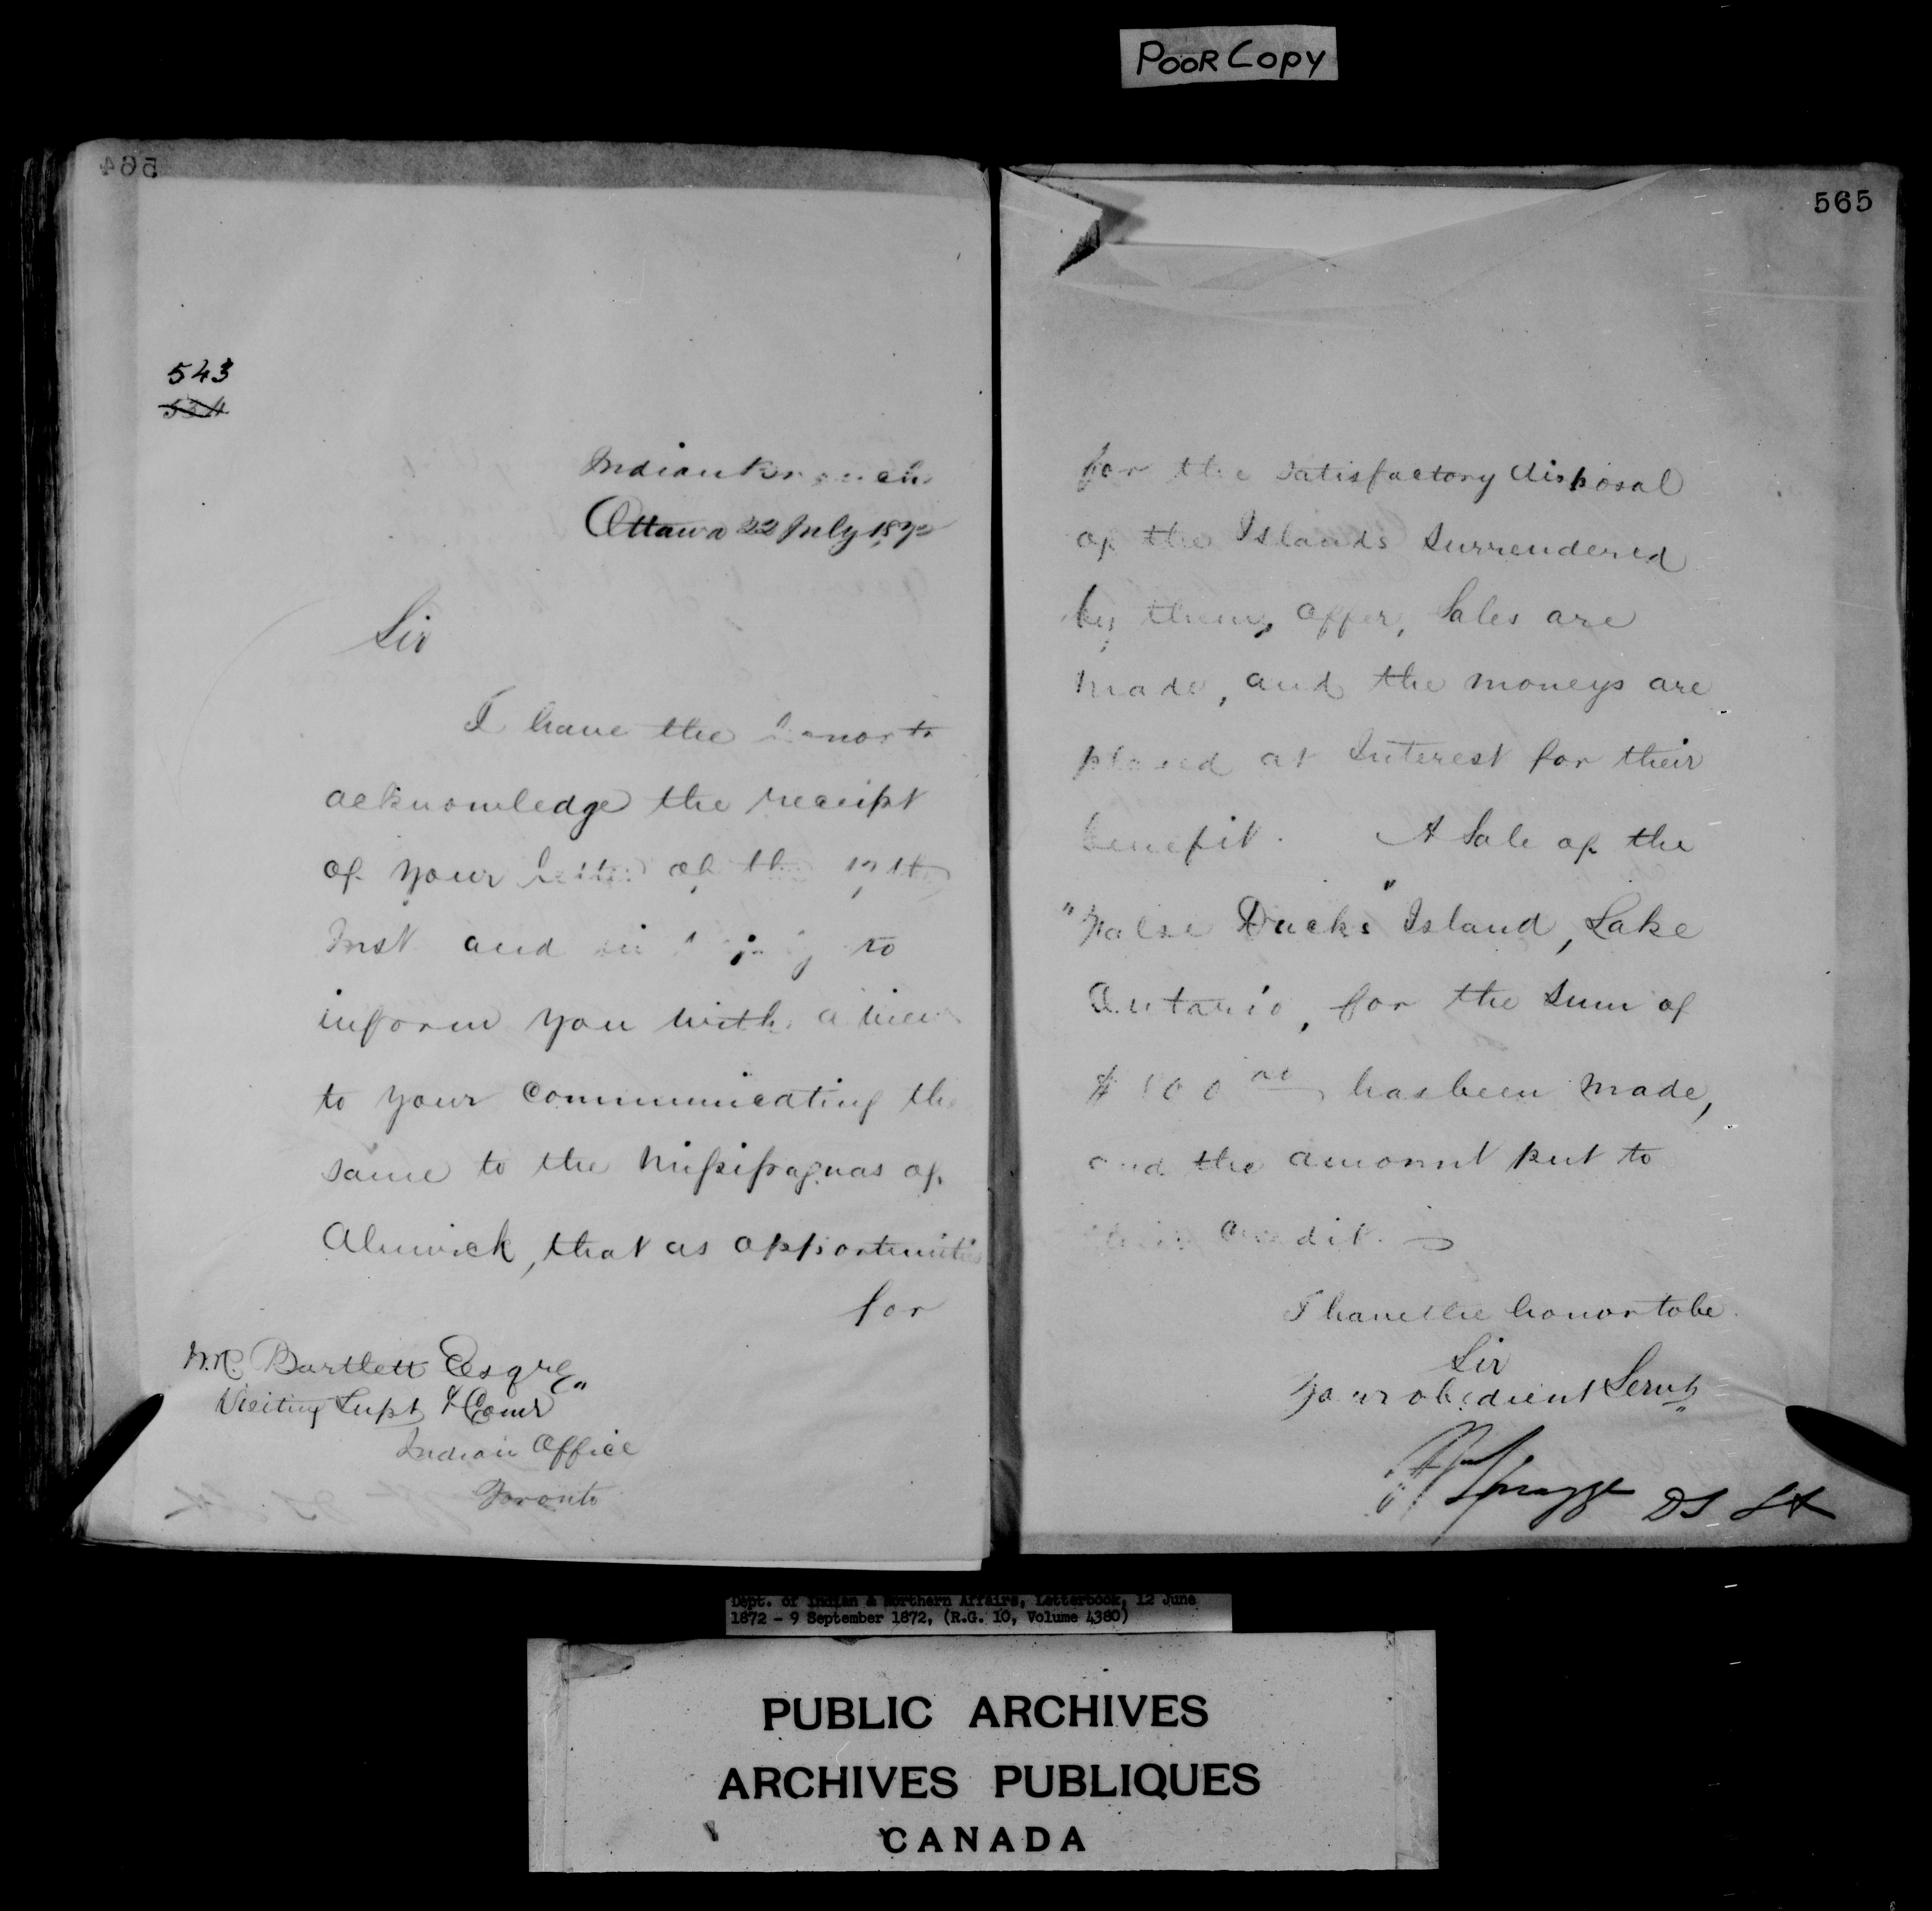 POOR COPY
564
543
534
Indian Branch
Ottawa 22 July 1872
Sir
I have the honor to
acknowledge the receipt
of your letter of the 17th
Inst and in to
inform you with a view
to your communicating the
same to the Missisaguas of
Alnwick, that as opportunities
for
W.R. Bartlett Esqre
Visiting Supt & Comr
Indian Office
Toronto
565
for the satisfactory disposal
of the Islands Surrendered
by them, offer, Sales are
made, and the moneys are
placed at Interest for their
benefit. A Sale of the
"False Ducks" Island, Lake
Ontario, for the Sum of
has been made,
and the amount put to
their credit.
I have the honor to be
Sir
Your obedient Servt
Spragge DS
Dept. of Indian & Northern Affairs, Letterbook, 12 June
1872 - 9 September 1872, (R.G. 10, Volume 4380)
PUBLIC ARCHIVES
ARCHIVES PUBLIQUES
CANADA